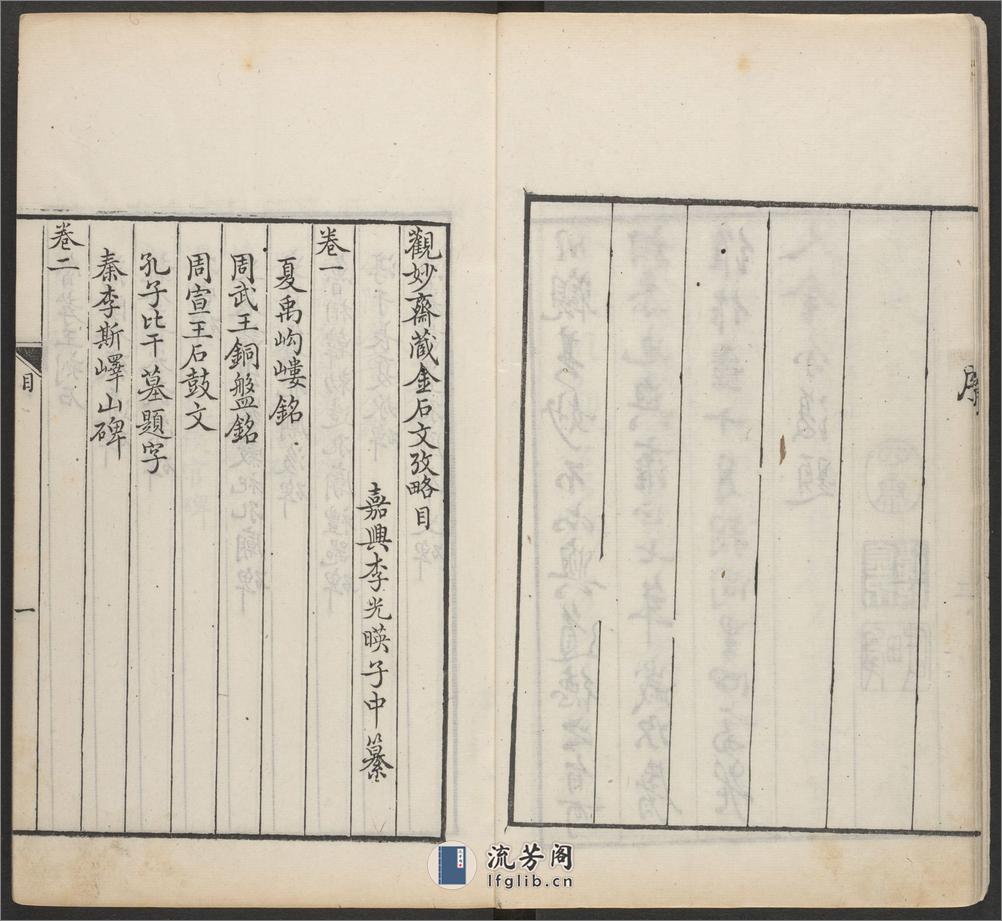 序
觀妙齋藏金石文攷略目
嘉興李光暎子中纂
卷一
夏禹岣嶁銘
周武王銅盤銘
周宣王石鼓文
孔子比干墓題字
秦李斯嶧山碑
卷二
目
一
流芳阁
lfglib.cn